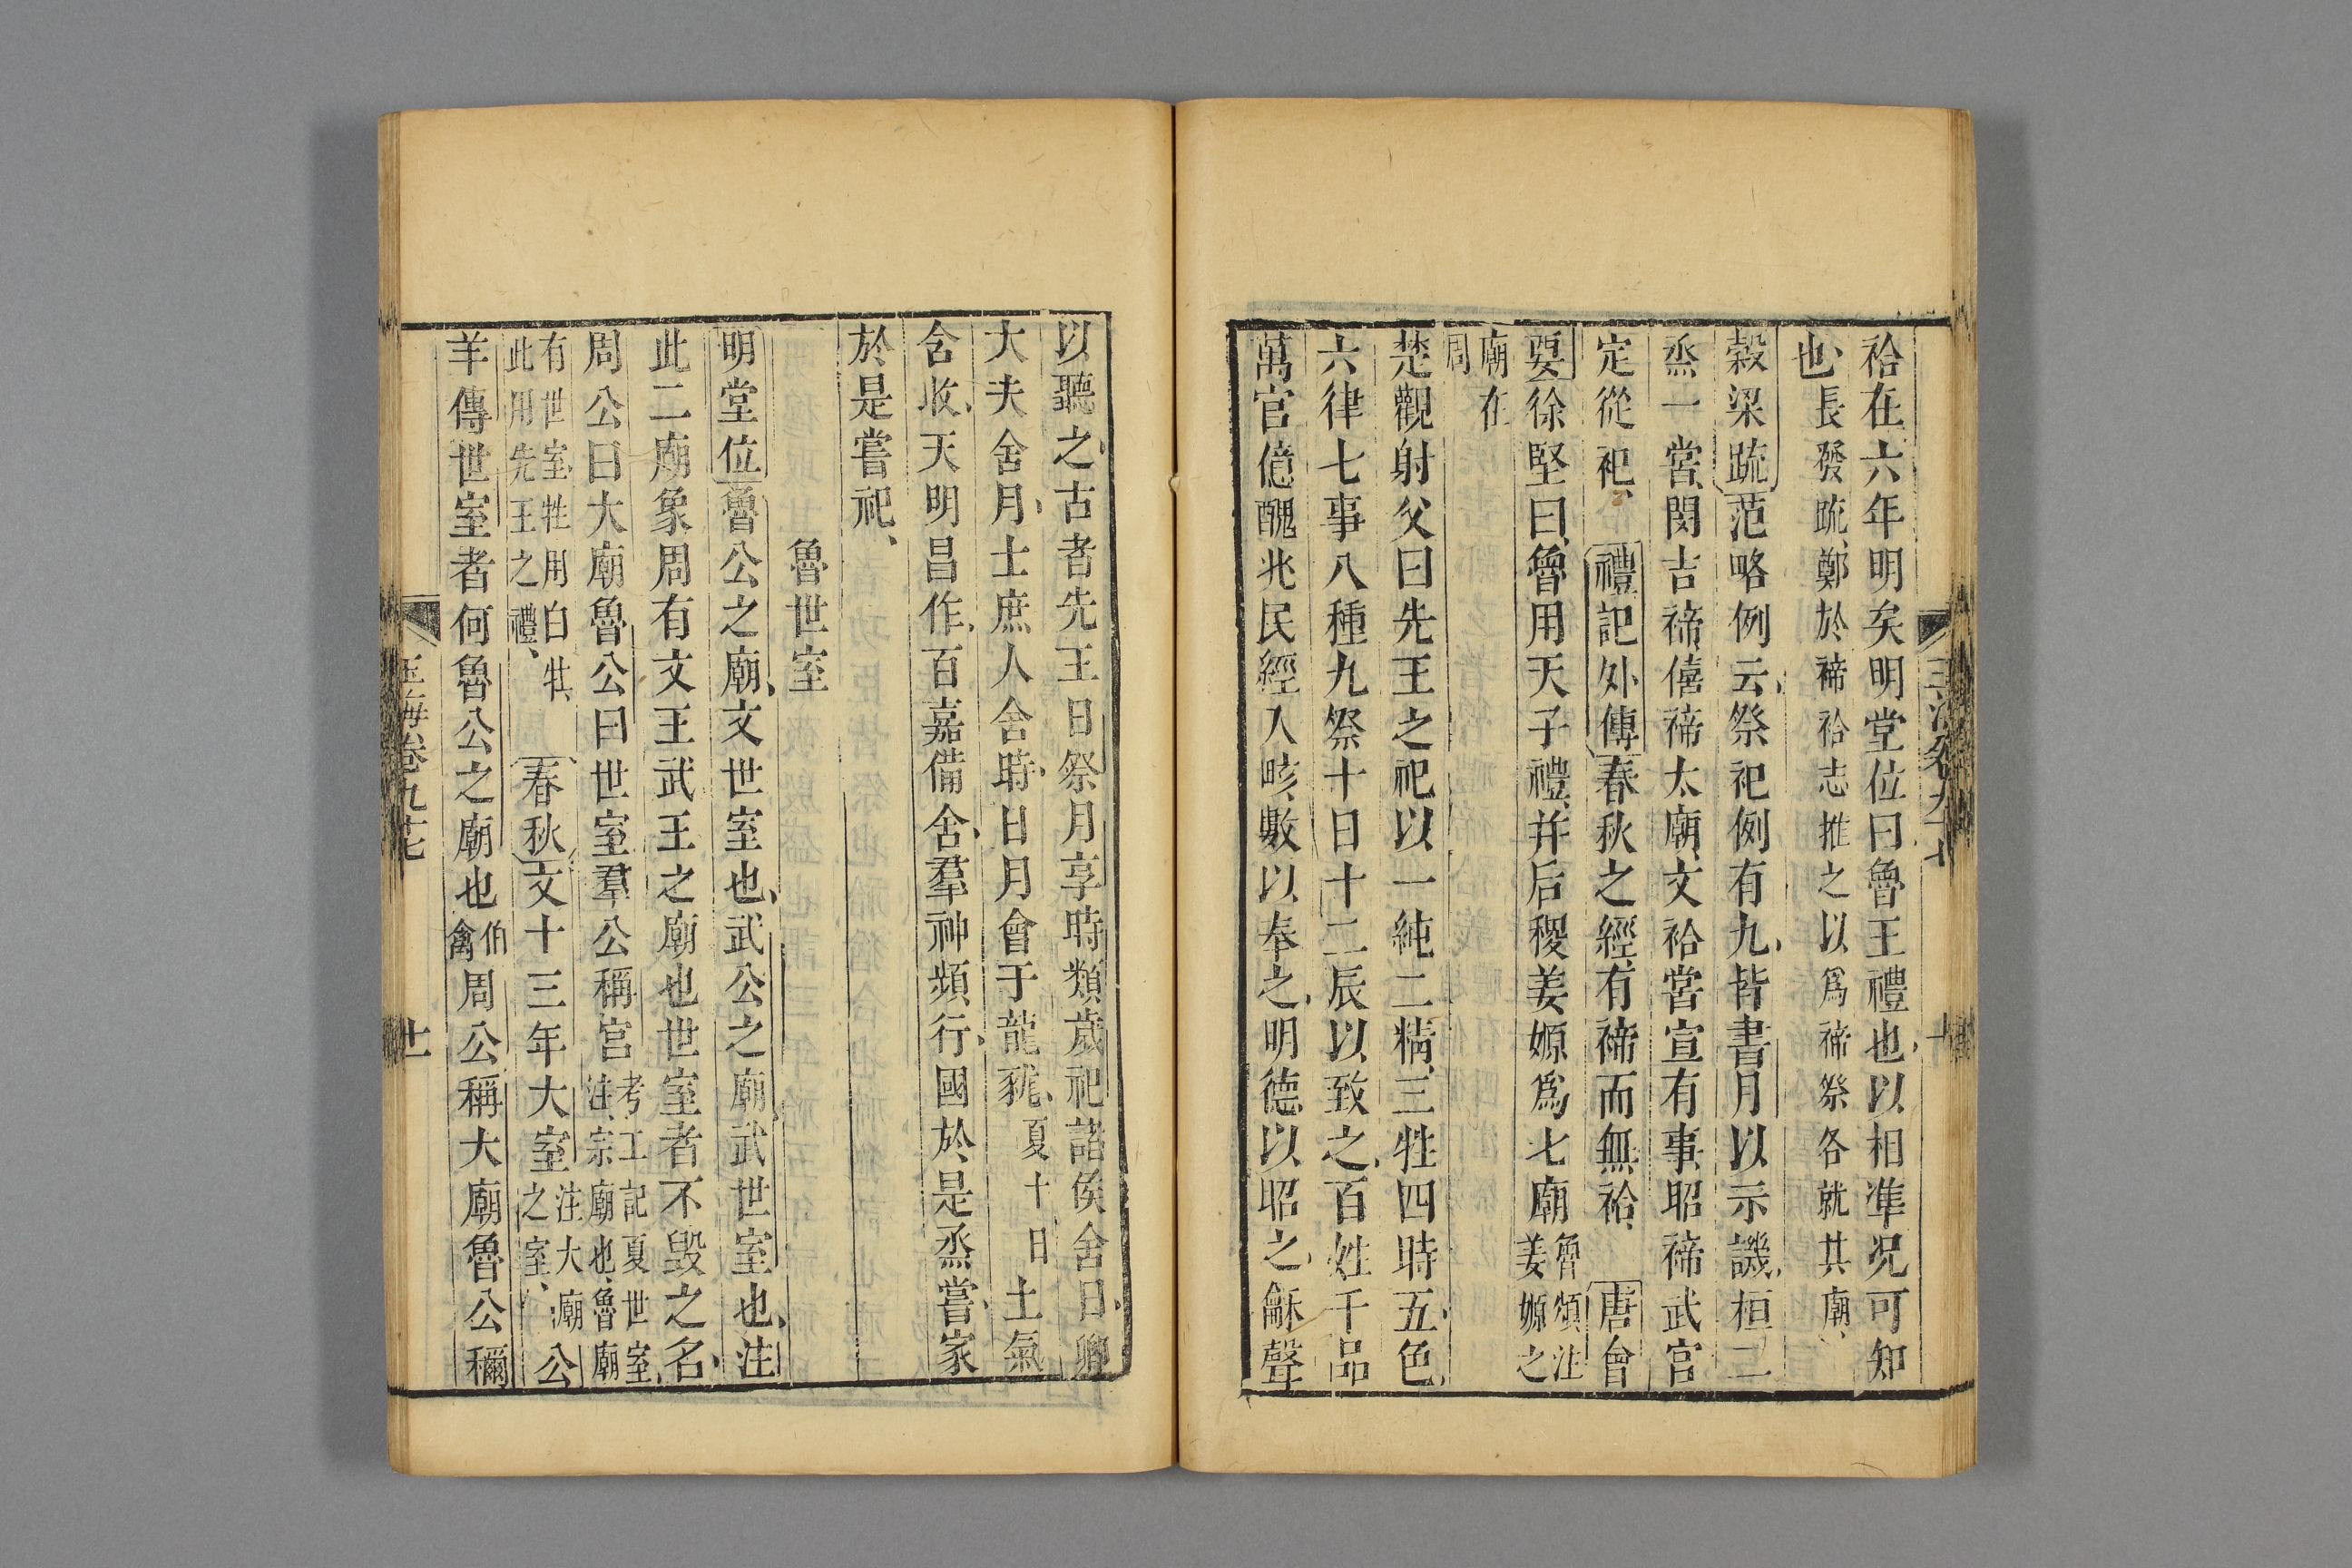 祫在六年明矣明堂位曰魯王禮也以相準况可知
也長發䟽鄭於禘祫志推之以爲禘祭各就其廟
穀梁䟽范略例云祭祀例有九皆書月以示譏桓二
烝一嘗閔吉禘僖禘太廟文祫嘗宣有事昭禘武宮
定從祀禮記外傳春秋之經有禘而無祫唐會
要徐堅曰魯用天子禮并后稷姜嫄爲七廟魯頌注姜嫄之
廟在周
楚觀射父曰先王之祀以一純二精三牲四時五色
六律七事八種九祭十日十二辰以致之百姓千品
萬官億醜兆民經入畡數以奉之明德以昭之龢聲
以聽之古者先王日祭月享時類歲祀諸侯舍日卿
大夫舍月士庶人舍時日月會于龍𧱓夏十日土氣
含收天明昌作百嘉備舍羣神頻行國於是烝嘗家
於是嘗祀
魯世室
明堂位魯公之廟文世室也武公之廟武世室也注
此二廟象周有文王武王之廟也世室者不毀之名
周公曰大廟魯公曰世室羣公稱宮考工記夏世室注宗廟也魯廟
有世室牲用白牡此用先王之禮春秋文十三年大室注大廟之室公
羊傳世室者何魯公之廟也伯禽周公稱大廟魯公稱
玉海卷九十七